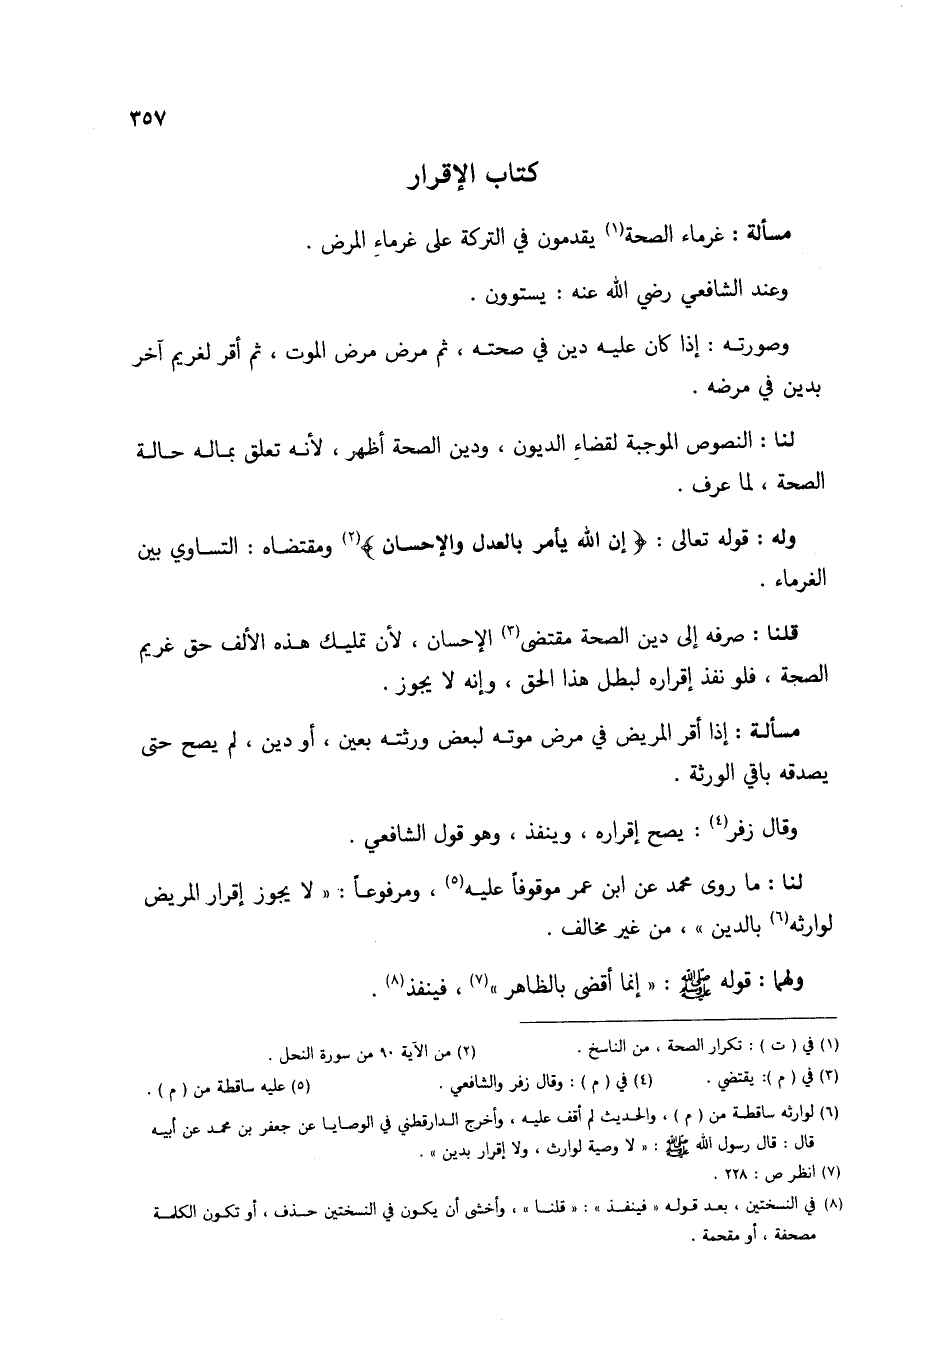 ٣٥٧
كتاب الإقرار
مسألة : غرماء الصحة(١) يقدمون في التركة على غرماء المرض .
وعند الشافعي رضي الله عنه : يستوون .
وصورتـه : إذا كان عليـه دين في صحتـه ، ثم مرض مرض الموت ، ثم أقر لغريم آخر
بدين في مرضه .
لنا : النصوص الموجبة لقضاء الديون ، ودين الصحة أظهر ، لأنـه تعلق بمـالـه حـالـة
الصحة ، لما عرف .
وله : قوله تعالى : ﴿ إن الله يأمر بالعدل والإحسـان ﴾(٢) ومقتضـاه : التسـاوي بين
الغرماء .
قلنـا : صرفه إلى دين الصحة مقتضى(٣) الإحسان ، لأن تمليـك هـذه الألف حق غريم
الصحة ، فلو نفذ إقراره لبطل هذا الحق ، وإنه لا يجوز .
مسألـة : إذا أقر المريض في مرض موتـه لبعض ورثتـه بعين ، أو دين ، لم يصح حتى
يصدقه باقي الورثة .
وقال زفر(٤) : يصح إقراره ، وينفذ ، وهو قول الشافعي .
لنـا : مـا روى محمد عن ابن عمر موقوفاً عليـه(٥) ، ومرفوعـاً : « لا يجوز إقرار المريض
لوارثه(٦) بالدين » ، من غير مخالف .
ولهما : قوله ﷺ : « إنما أقضى بالظاهر »(٧) ، فينفذ(٨) .
(١) في ( ت ) : تكرار الصحة ، من الناسخ . (٢) من الآية ٩٠ من سورة النحل .
(٣) في ( م ): يقتضي . (٤) في ( م ) : وقال زفر والشافعي . (٥) عليه ساقطة من ( م ) .
(٦) لوارثه ساقطـة من ( م ) ، والحديث لم أقف عليـه ، وأخرج الـدارقطني في الوصايـا عن جعفر بن محمـد عن أبيـه
قال : قال رسول الله ﷺ : « لا وصية لوارث ، ولا إقرار بدين » .
(٧) انظر ص : ٢٢٨ .
(٨) في النسختين ، بعـد قـولـه « فينفـذ » : « قلنـا » ، وأخشى أن يكـون في النسختين حـذف ، أو تكـون الكلمـة
مصحفة ، أو مقحمة .